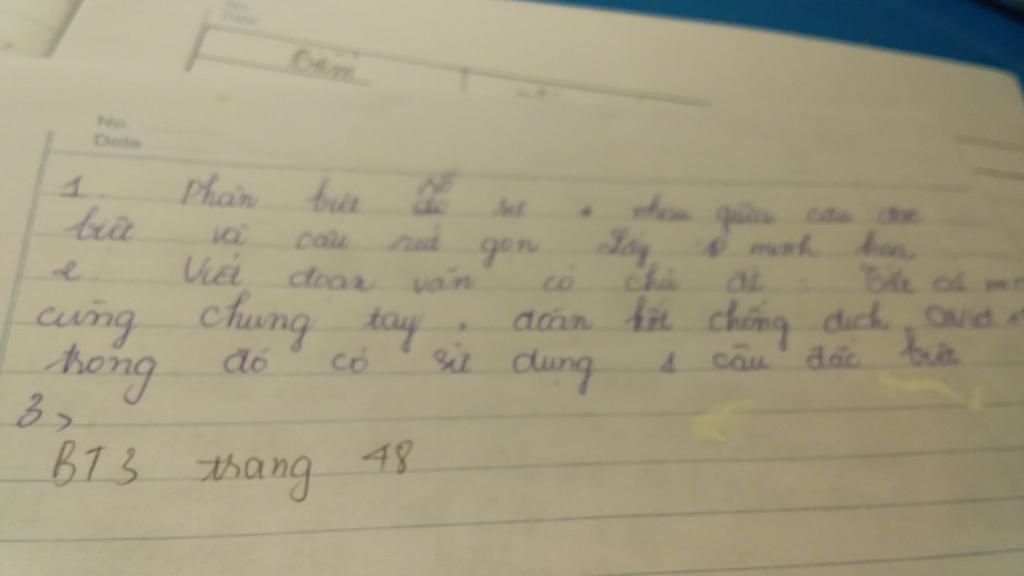 No.
Date
Đếm
No.
Date
1. Phân biệt sự nhau giữa câu đặc
biệt và câu rút gọn. Lấy minh họa
2. Viết đoạn văn có chủ đề: Tất cả
cùng chung tay, đoàn kết chống dịch Covid
trong đó có sử dụng 1 câu đặc biệt
3,
BT3 trang 48